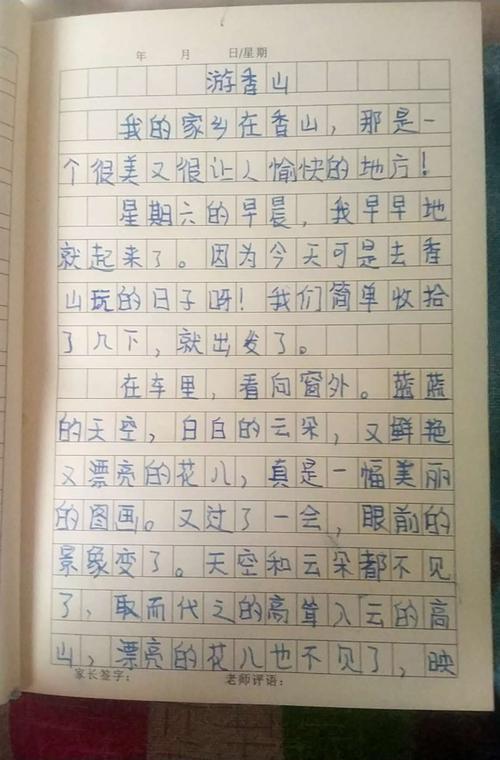 年 月 日/星期
游香山
我的家乡在香山，那是一
个很美又很让人愉快的地方！
星期六的早晨，我早早地
就起来了。因为今天可是去香
山玩的日子呀！我们简单收拾
了几下，就出发了。
在车里，看向窗外。蓝蓝
的天空，白白的云朵，又鲜艳
又漂亮的花儿，真是一幅美丽
的图画。又过了一会，眼前的
景象变了。天空和云朵都不见
了，取而代之的高耸入云的高
山，漂亮的花儿也不见了，映
家长签字： 老师评语：